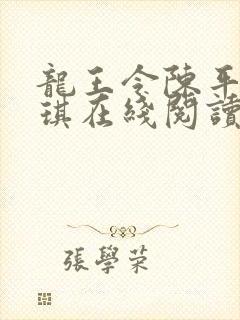 龍王令陳平
琪在綫閱讀
張學榮